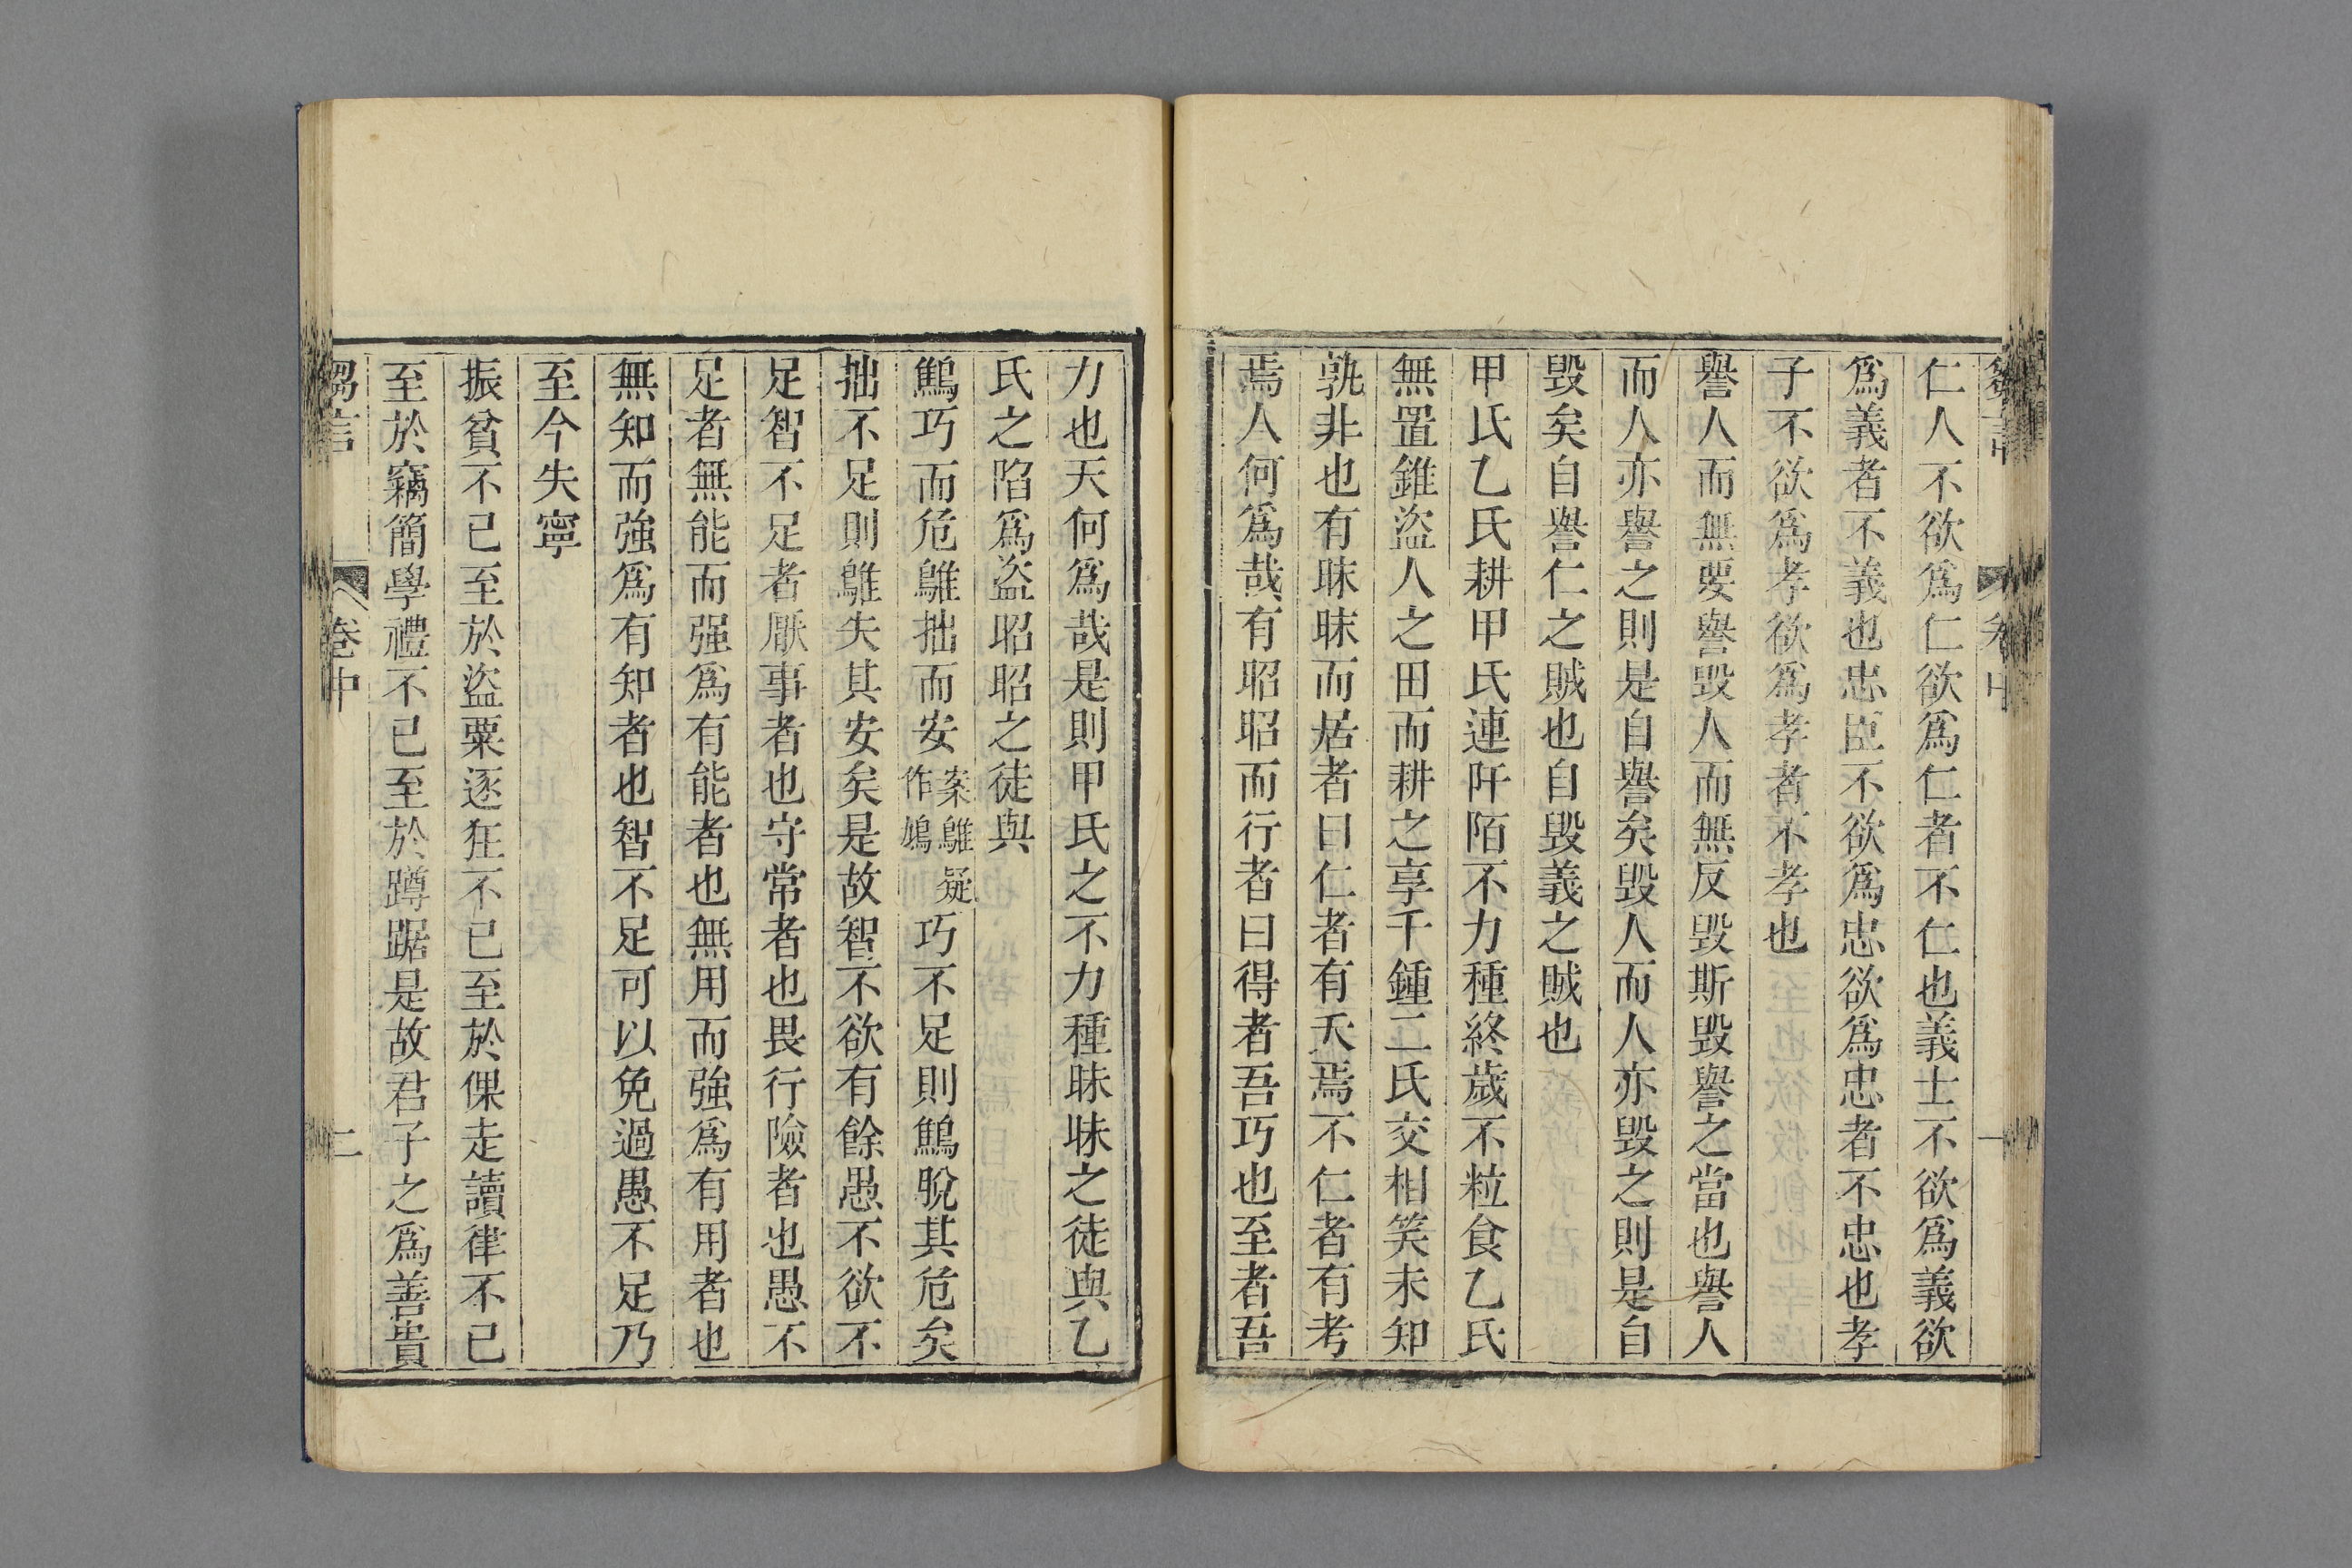 仁人不欲爲仁欲爲仁者不仁也義士不欲爲義欲
爲義者不義也忠臣不欲爲忠欲爲忠者不忠也孝
子不欲爲孝欲爲孝者不孝也
譽人而無要譽毀人而無反毀斯毀譽之當也譽人
而人亦譽之則是自譽矣毀人而人亦毀之則是自
毀矣自譽仁之賊也自毀義之賊也
甲氏乙氏耕甲氏連阡陌不力種終歲不粒食乙氏
無置錐盜人之田而耕之享千鍾二氏交相笑未知
孰非也有昧昧而居者曰仁者有天焉不仁者有考
焉人何爲哉有昭昭而行者曰得者吾巧也至者吾
力也天何爲哉是則甲氏之不力種昧昧之徒與乙
氏之陷爲盜昭昭之徒與
鷦巧而危鵻拙而安案鵻疑作鳩巧不足則鷦脫其危矣
拙不足則鵻失其安矣是故智不欲有餘愚不欲不
足智不足者厭事者也守常者也畏行險者也愚不
足者無能而强爲有能者也無用而強爲有用者也
無知而強爲有知者也智不足可以免過愚不足乃
至今失寧
振貧不已至於盜粟逐狂不已至於倮走讀律不已
至於竊簡學禮不已至於蹲踞是故君子之爲善貴
芻言 卷中 二